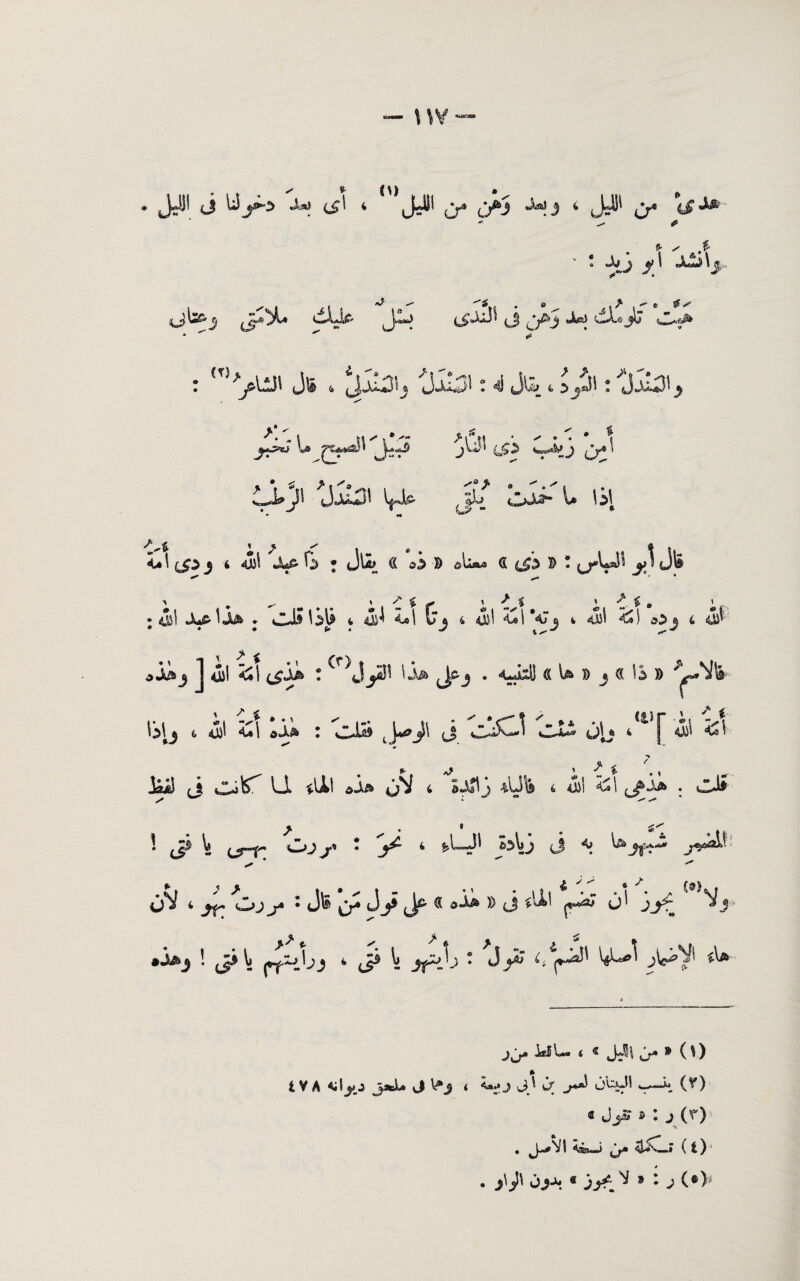 — ١١٧ —
هَدِيٌّ من الليل ، وبعد وَهْنٍ من الليل (١) ، أى بعدَ دخولنا في الليل .
وأنشدَ أبو زيد :
هَبَّتْ تَلُومُكَ بعد وَهْنٍ في النَّدَى بَسْلٌ عليك مَلامَتِي وعتابى
والمَنْدَلُ : العُود ، يقال له : المَنْدَلُ والمَنْدَلِىُّ ، قال الشاعرُ (٢) :
أَمِنْ زينبَ ذى النَّارُ قُبَيْلَ الصبح ما تخبو
إذا ما خَمَدَتْ يُلْقَى عليها المَنْدَلُ الرَّطْبُ
قال أبو العباس : « ذى » معناه « ذِه » يقال : ذا عبدُ الله ، وذى أَمَةُ
الله ، وذِهْ أَمَةُ الله ، وتِهْ أَمَةُ الله ، وتا أَمَةُ الله ، فإذا قلتَ : هذا عبد الله :
فالاسمُ « ذا » و « ها » للتنبيه . وعلى هذا القَوْلِ (٣) : هذى أَمَةُ الله [ وهذه
أَمَةُ الله ] (٤) ، وإن شئتَ أسْكَنْتَ في الوصلِ فقلتَ : هذِهْ أَمَةُ الله ، وإذا
قلت : هذِهِى أَمَةُ الله ، فالياءُ زائدةٌ ، لأن هذه الهاء لما كانت في لفظ
المضمَرِ شبَّهوها به في زيادةِ الياء ، نحوُ : مررتُ بهِى يا فتى !
ولا (٥) يجوزُ أن تضُمَّ الهاء في « هذه » على قولِ مَنْ قال : مررتُ بهُو ، لأن
هاءَ الإضمارِ أصلُها الضَّمُّ ، تقولُ : رأيتهُو يا فتى ، ورأيتُهُم يا فتى ! وهذه
(١) « من الليل » ، ساقط من ر
(٢) ينسب البيتان لعمر بن أبى ربيعة ، وهما في ملحق ديوانه ٤٧٨
(٣) ر : « تقول »
(٤) تسكملة من نسخة الأصل .
(٥) ر : « لا يجوز » بدون الواو .